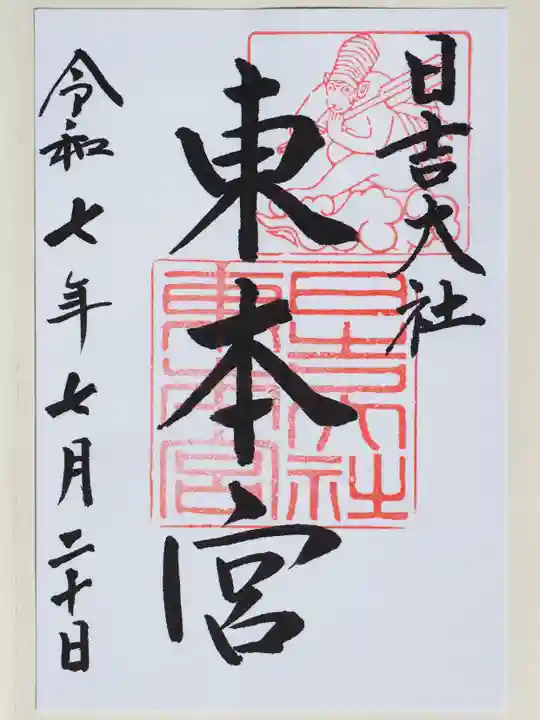 日吉大社
東本宮
令和七年七月二十日
日吉大社
東本宮